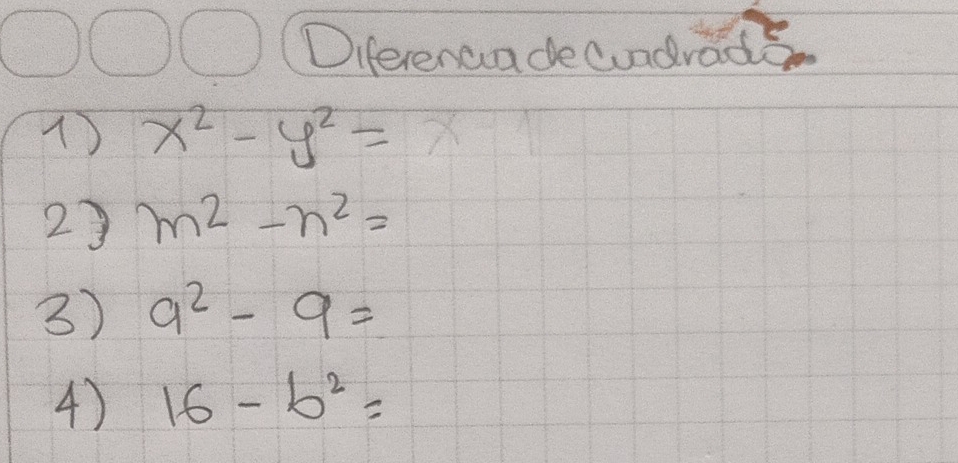 Diferencia de Cuadrados
1) x² - y² =
2) m² - n² =
3) a² - 9 =
4) 16 - b² =